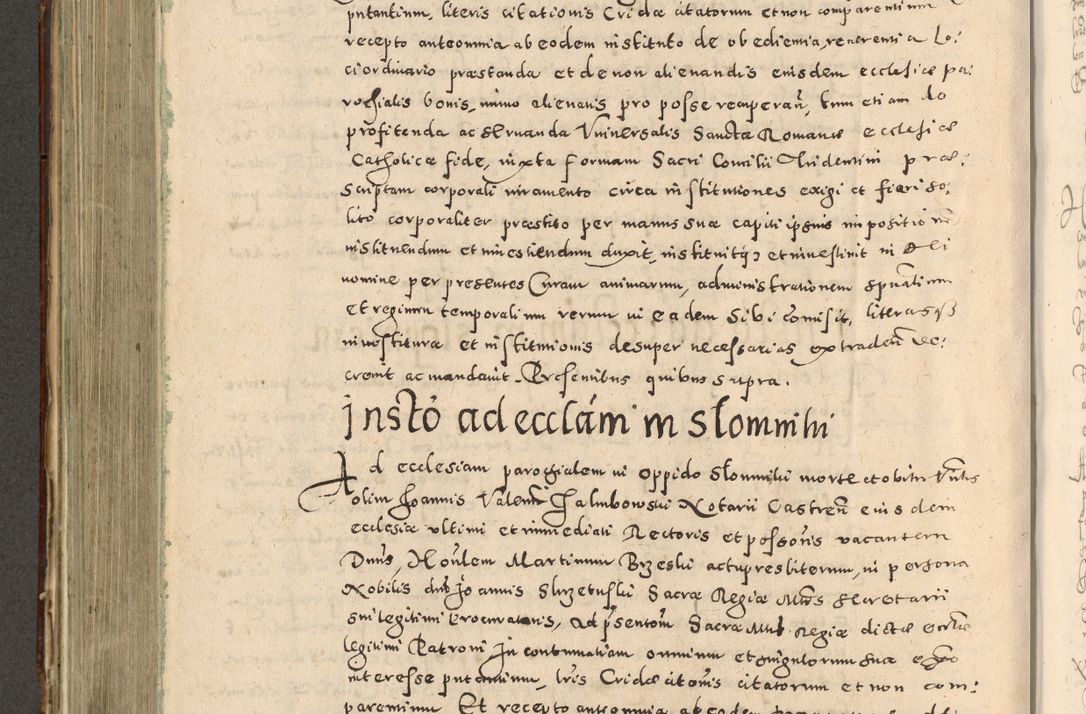 putantium, literis citationis Cridæ citatorum et non comparentium
recepto anteomnia ab eodem instituto de obedientia, reverentia Lo:
ci ordinario præstanda et de non alienandis eiusdem ecclesiæ pa:
rochialis bonis, immo alienatis pro posse recuperan̄, tum etiam do
profitenda ac servanda Vniversalis Sanctæ Romanæ ecclesiæ
Catholicæ fide, iuxta formam Sacri Concilii Tridentini præ:
scriptam corporali iuramento circa institutiones exigi et fieri so:
lito corporaliter præstito per manus suæ capiti ipsius impositionē
instituendum et investiendum duxit, instituitq; et investivit in Dei
nomine per presentes Curam animarum, administrationem spūalium
et regimen temporalium rerum in eadem sibi cōmisit, literasq̃
investituræ et institutionis desuper necessarias extraden̄ de:
crevit ac mandavit. Presentibus quibus supra.
Instō ad ecclām in Slomniki
Ad ecclesiam parochialem in oppido Slomniki morte et obitu
olim Joannis Valent Jalmbowski Notarii Castren̄ eiusdem
ecclesiæ ultimi et immediati Rectoris et possoris vacantem
Dnus, Honlem Martinum Brzeski actu presbiterum, in persona
Nobilis dni Joannis Skrzetuski Sacræ Regiæ Mtis Secretarii
sui legitimi procuratoris, ad p̄sentom Sacræ Mtis Regiæ dictæ eccliæ
legitimi Patroni In contumatiam omnium et singulorum sua
interesse putantium, lris Cridæ citonis citatorum et non com:
parentium Et recepto anteomnia ab eodem